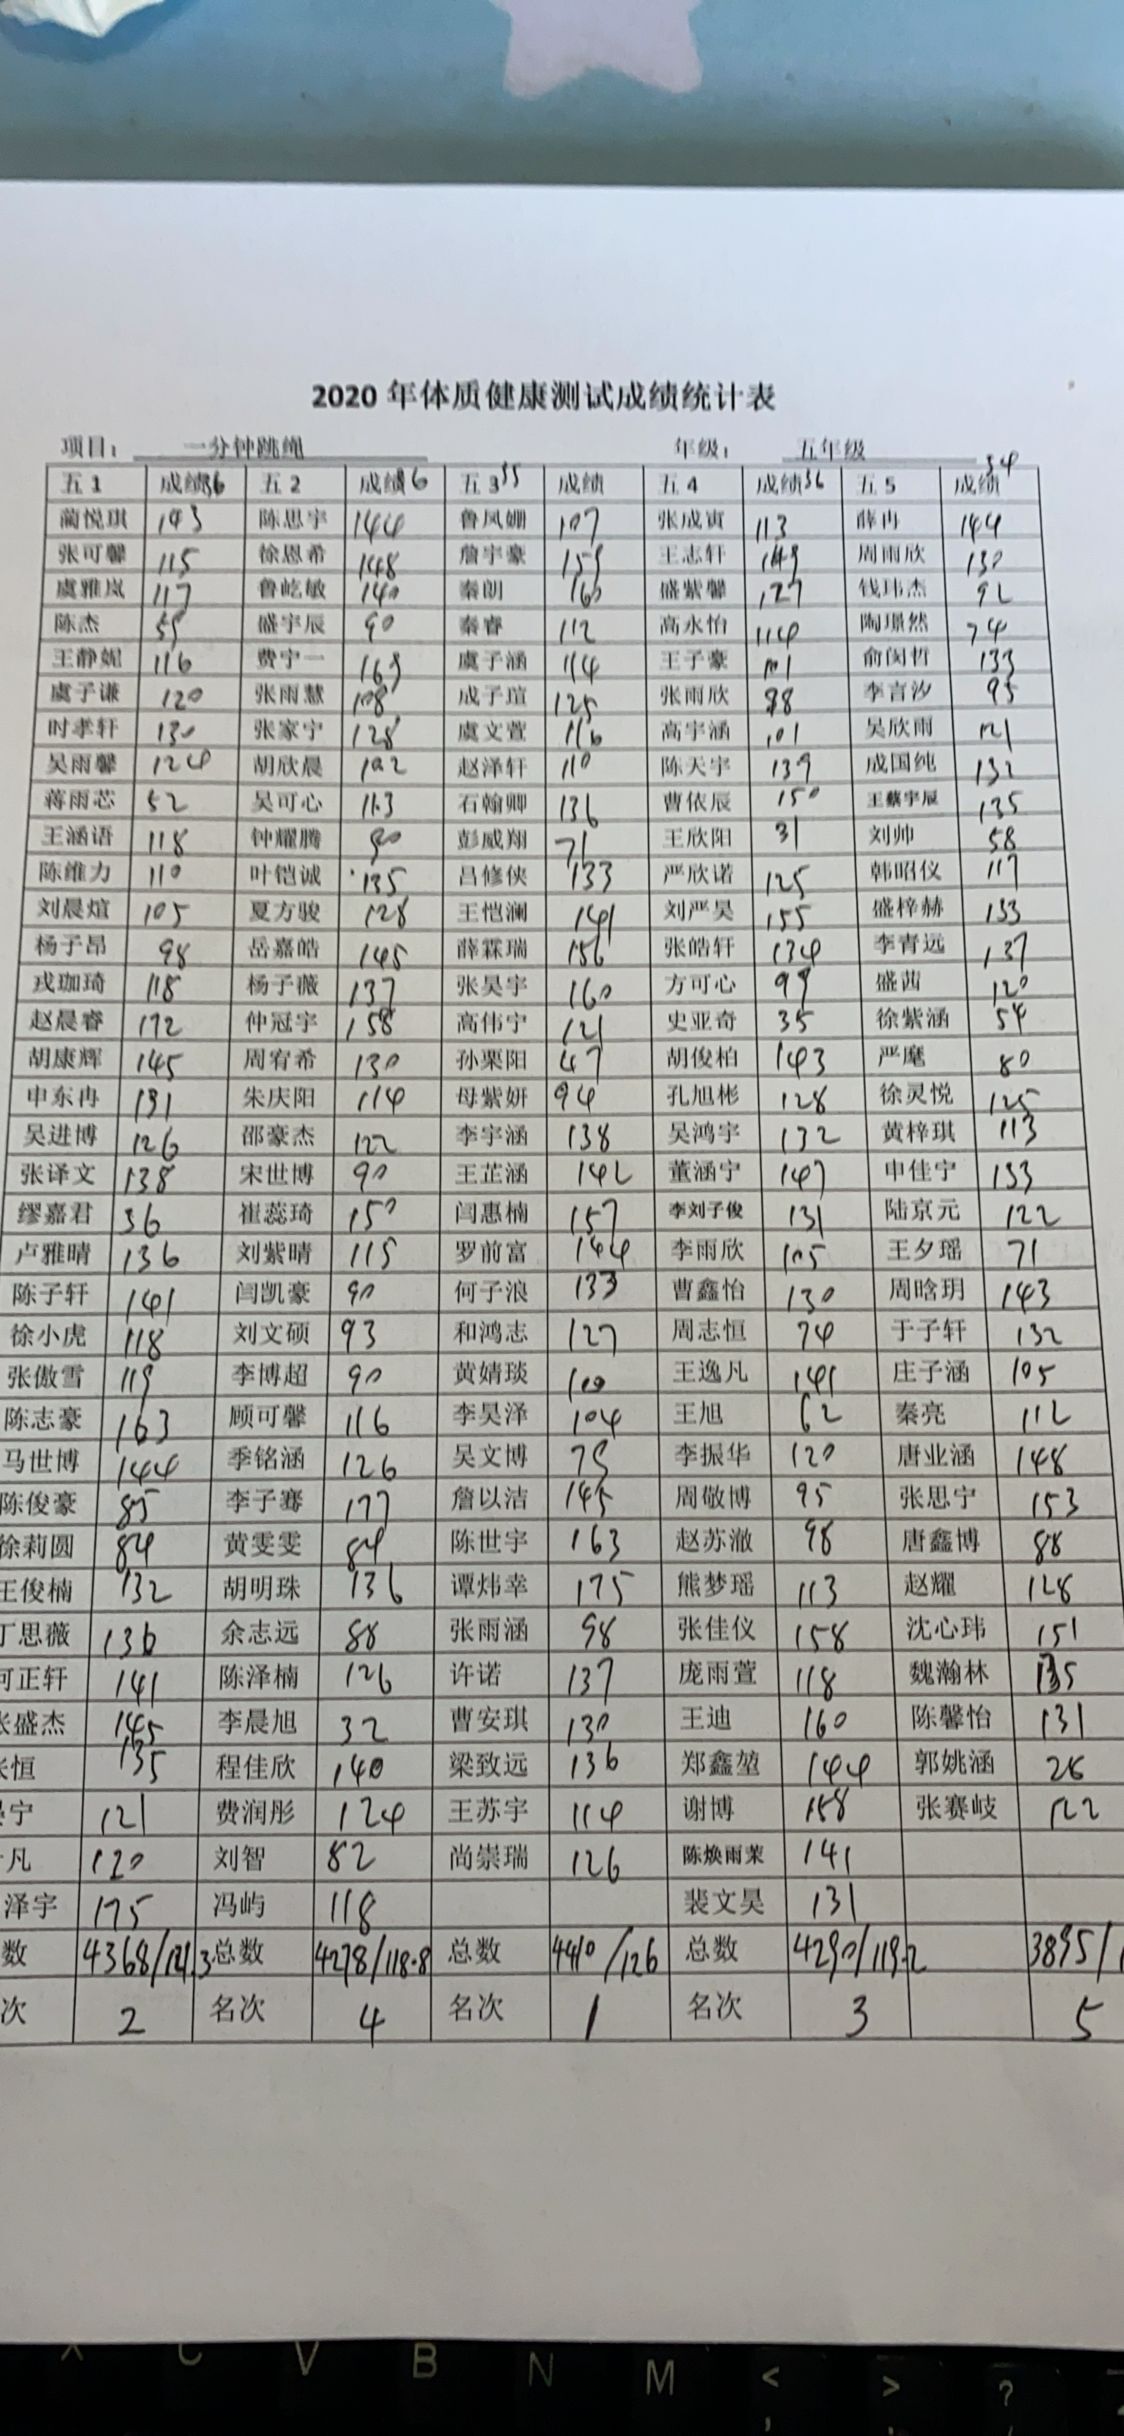 2020年体质健康测试成绩统计表
项目： 一分钟跳绳 年级： 五年级
五1 成绩36 五2 成绩36 五3 35 成绩 五4 成绩36 五5 成绩34
蔺悦琪 143 陈思宇 144 鲁凤姗 107 张成寅 113 薛冉 144
张可馨 115 徐恩希 148 詹宇豪 159 王志轩 149 周雨欣 130
虞雅岚 117 鲁屹敏 140 秦朗 160 盛紫馨 127 钱玮杰 92
陈杰 盛宇辰 90 秦睿 112 高永怡 114 陶璟然 74
王静妮 116 费宁一 169 虞子涵 114 王子豪 101 俞闵哲 133
虞子谦 120 张雨慧 108 成子瑄 125 张雨欣 98 李言汐 95
时孝轩 130 张家宁 128 虞文萱 116 高宇涵 101 吴欣雨 121
吴雨馨 124 胡欣晨 102 赵泽轩 110 陈天宇 139 成国纯 132
蒋雨芯 52 吴可心 113 石翰卿 136 曹依辰 150 王蔡宇辰 135
王涵语 118 钟耀腾 90 彭威翔 71 王欣阳 31 刘帅 58
陈维力 110 叶铠诚 135 吕修侠 133 严欣诺 125 韩昭仪 117
刘晨煊 105 夏方骏 128 王恺澜 141 刘严昊 155 盛梓赫 133
杨子昂 98 岳嘉皓 145 薛霖瑞 156 张皓轩 134 李青远 137
戎珈琦 118 杨子薇 137 张昊宇 160 方可心 99 盛茜 120
赵晨睿 172 仲冠宇 158 高伟宁 121 史亚奇 35 徐紫涵 54
胡康辉 145 周宥希 130 孙栗阳 47 胡俊柏 143 严麾 80
申东冉 131 朱庆阳 114 母紫妍 94 孔旭彬 128 徐灵悦 125
吴进博 126 邵豪杰 122 李宇涵 138 吴鸿宇 132 黄梓琪 113
张译文 138 宋世博 90 王芷涵 142 董涵宁 147 申佳宁 133
缪嘉君 36 崔蕊琦 150 闫惠楠 157 李刘子俊 131 陆京元 122
卢雅晴 136 刘紫晴 115 罗前富 144 李雨欣 105 王夕瑶 71
陈子轩 141 闫凯豪 90 何子浪 133 曹鑫怡 130 周晗玥 143
徐小虎 118 刘文硕 93 和鸿志 127 周志恒 74 于子轩 132
张傲雪 119 李博超 90 黄婧琰 100 王逸凡 141 庄子涵 105
陈志豪 163 顾可馨 116 李昊泽 104 王旭 62 秦亮 112
马世博 144 季铭涵 126 吴文博 75 李振华 120 唐业涵 148
陈俊豪 85 李子骞 177 詹以洁 145 周敬博 95 张思宁 153
徐莉圆 84 黄雯雯 84 陈世宇 163 赵苏澈 98 唐鑫博 88
王俊楠 132 胡明珠 136 谭炜幸 175 熊梦瑶 113 赵耀 128
丁思薇 136 余志远 88 张雨涵 98 张佳仪 158 沈心玮 151
何正轩 141 陈泽楠 126 许诺 137 庞雨萱 118 魏瀚林 135
张盛杰 145 李晨旭 32 曹安琪 130 王迪 160 陈馨怡 131
恒 135 程佳欣 140 梁致远 136 郑鑫堃 144 郭姚涵 26
宁 121 费润彤 124 王苏宇 114 谢博 158 张赛岐 122
凡 120 刘智 82 尚崇瑞 126 陈焕雨荣 141
泽宇 175 冯屿 118 裴文昊 131
数 4368/121.3 总数 4278/118.8 总数 4410/126 总数 4290/119.2 3895/1
次 2 名次 4 名次 1 名次 3 5
V B N M < > ?